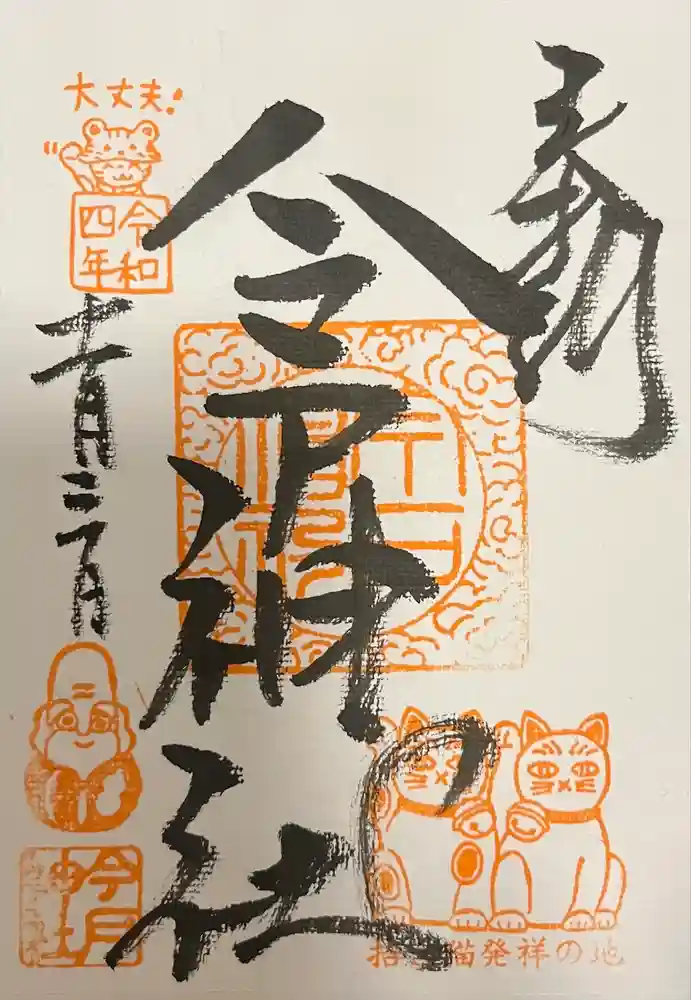 奉拝
今戸神社
大丈夫!
令和
四年
十一月二日
招き猫発祥の地
今戸